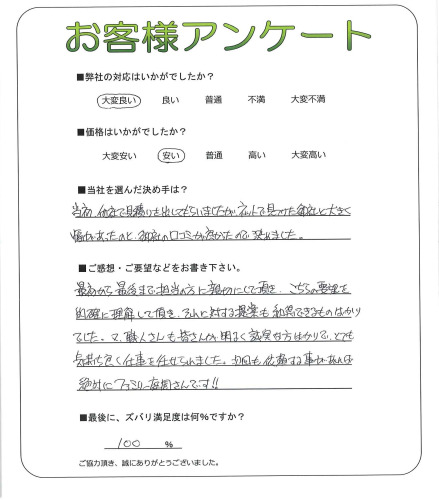 お客様アンケート
■弊社の対応はいかがでしたか？
大変良い 良い 普通 不満 大変不満
■価格はいかがでしたか？
大変安い 安い 普通 高い 大変高い
■当社を選んだ決め手は？
当初、他社で見積りを出してもらいましたが、ネットで見つけた御社と大きく
幅があったのと、御社の口コミが良かったので決めました。
■ご感想・ご要望などをお書き下さい。
最初から最後まで担当の方に親切にして頂き、こちらの要望を
的確に理解して頂き、それに対する提案も納得できるものばかり
でした。又、職人さんも皆さんが明るく誠実な方ばかりで、とても
気持ち良く仕事を任せられました。次回も依頼する事があれば
絶対にファミリー庭園さんです!!
■最後に、ズバリ満足度は何%ですか？
100 %
ご協力頂き、誠にありがとうございました。